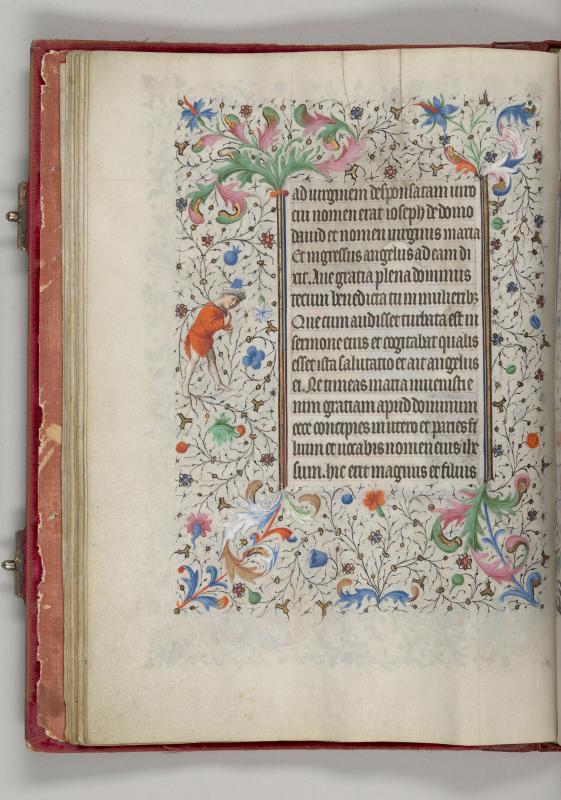 ad virginem desponsatam viro
cui nomen erat ioseph de domo
david et nomen virginis maria
Et ingressus angelus ad eam di
xit. Ave gratia plena dominus
tecum benedicta tu in mulieribꝫ
Que cum audisset turbata est in
sermone eius et cogitabat qualis
esset ista salutatio et ait angelus
ei. Ne timeas maria invenisti e
nim gratiam apud dominum
ecce concipies in utero et paries fi
lium et vocabis nomen eius ihe
sum. hic erit magnus et filius